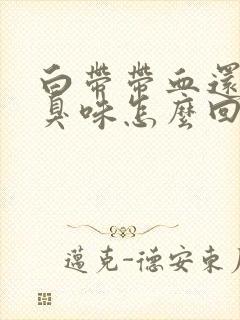 白帶帶血還
臭味怎麼回
邁克-德安東